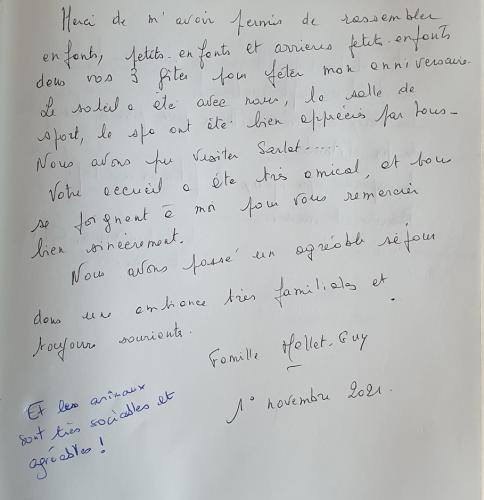 Merci de m'avoir permis de rassembler
enfants, petits-enfants et arrières petits-enfants
dans vos 3 gîtes pour fêter mon anniversaire.
Le soleil a été avec nous, la salle de
sport, le spa ont été bien appréciés par tous-
Nous avons pu visiter Sarlat.....
Votre accueil a été très amical, et tous
se joignent à moi pour vous remercier
bien sincèrement.
Nous avons passé un agréable séjour
dans une ambiance très familiale et
toujours souriante.
Famille Mellet-Guy
1° novembre 2021.
Et les animaux
sont très sociables et
agréables !